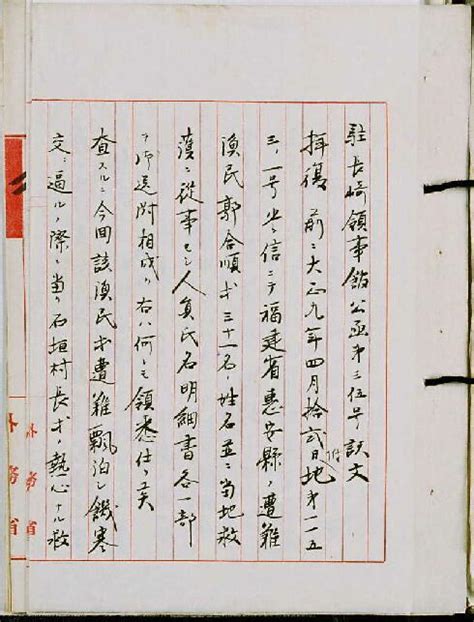 駐長崎領事館公函第三伍号訳文
拝復 前ニ大正九年四月拾弐日付 地第一一五
三、一号 信ニテ福建省惠安縣ノ遭難
漁民郭合順等三十一名ノ姓名並ニ当地救
護ニ従事セシ人員氏名明細書各一部
御送附相成リ右ハ何レモ領悉仕リ候
査スルニ今回該漁民等遭難飄泊シ饑寒
交ニ逼ルノ際ニ当リ石垣村長等ノ熱心ナル救
外務省
外務省